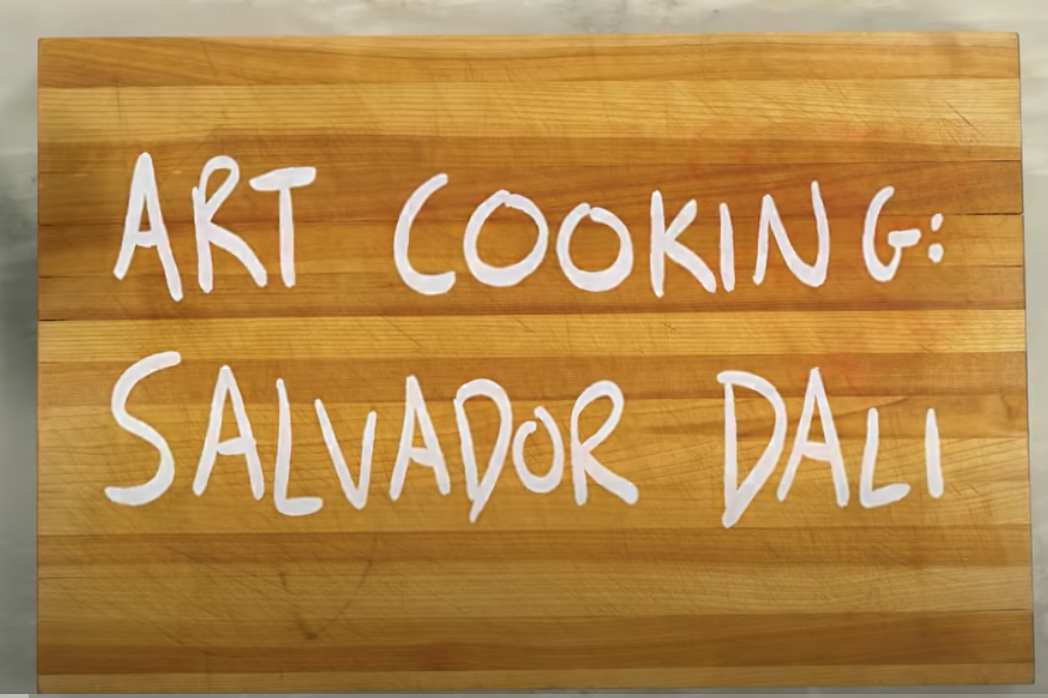 ART COOKING:
SALVADOR DALI